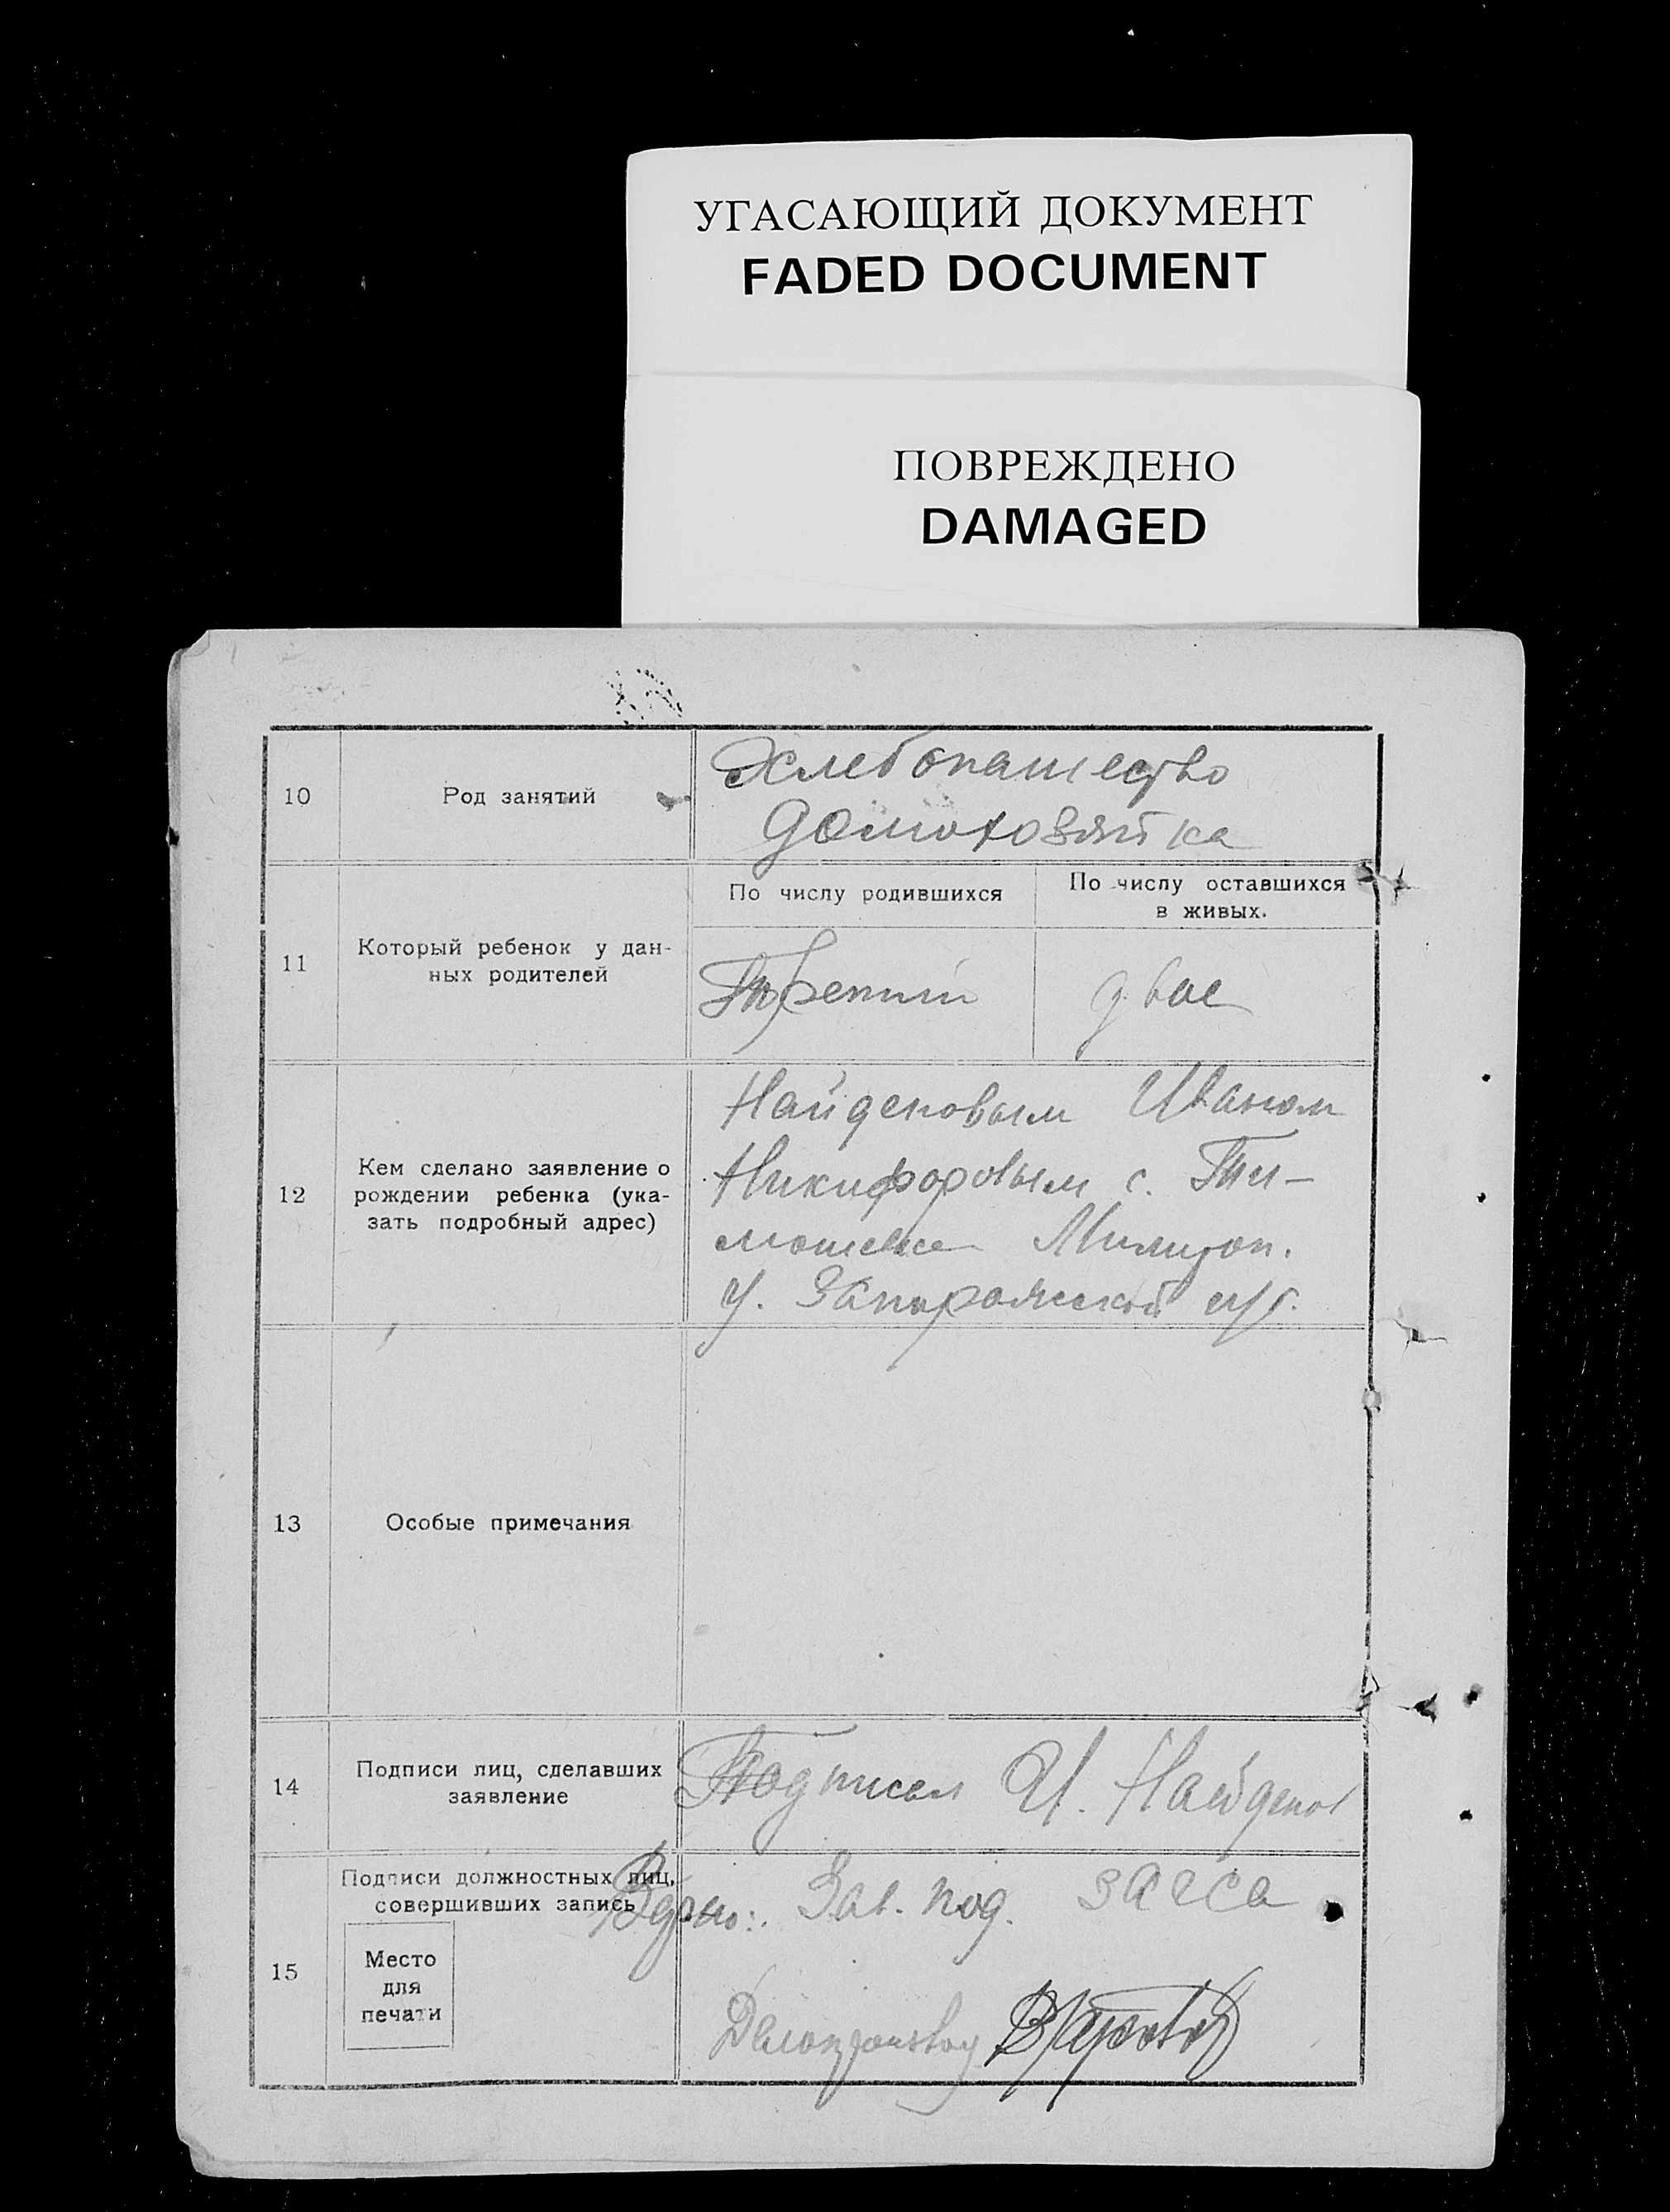 УГАСАЮЩИЙ ДОКУМЕНТ
FADED DOCUMENT
ПОВРЕЖДЕНО
DAMAGED
10
Род занятий
Хлебопашество
домохозяйка
11
Который ребенок у дан-
ных родителей
По числу родившихся
Третий
По числу оставшихся
в живых.
двое
12
Кем сделано заявление о
рождении ребенка (ука-
зать подробный адрес)
Найденовым Иваном
Никифоровым с. Ти-
мошевка Милитоп.
у. Запорожской губ.
13
Особые примечания
14
Подписи лиц, сделавших
заявление
Подписал И. Найденов
15
Подписи должностных лиц,
совершивших запись
Место
для
печати
Верно: Зав. под. загса
Делопроизвод